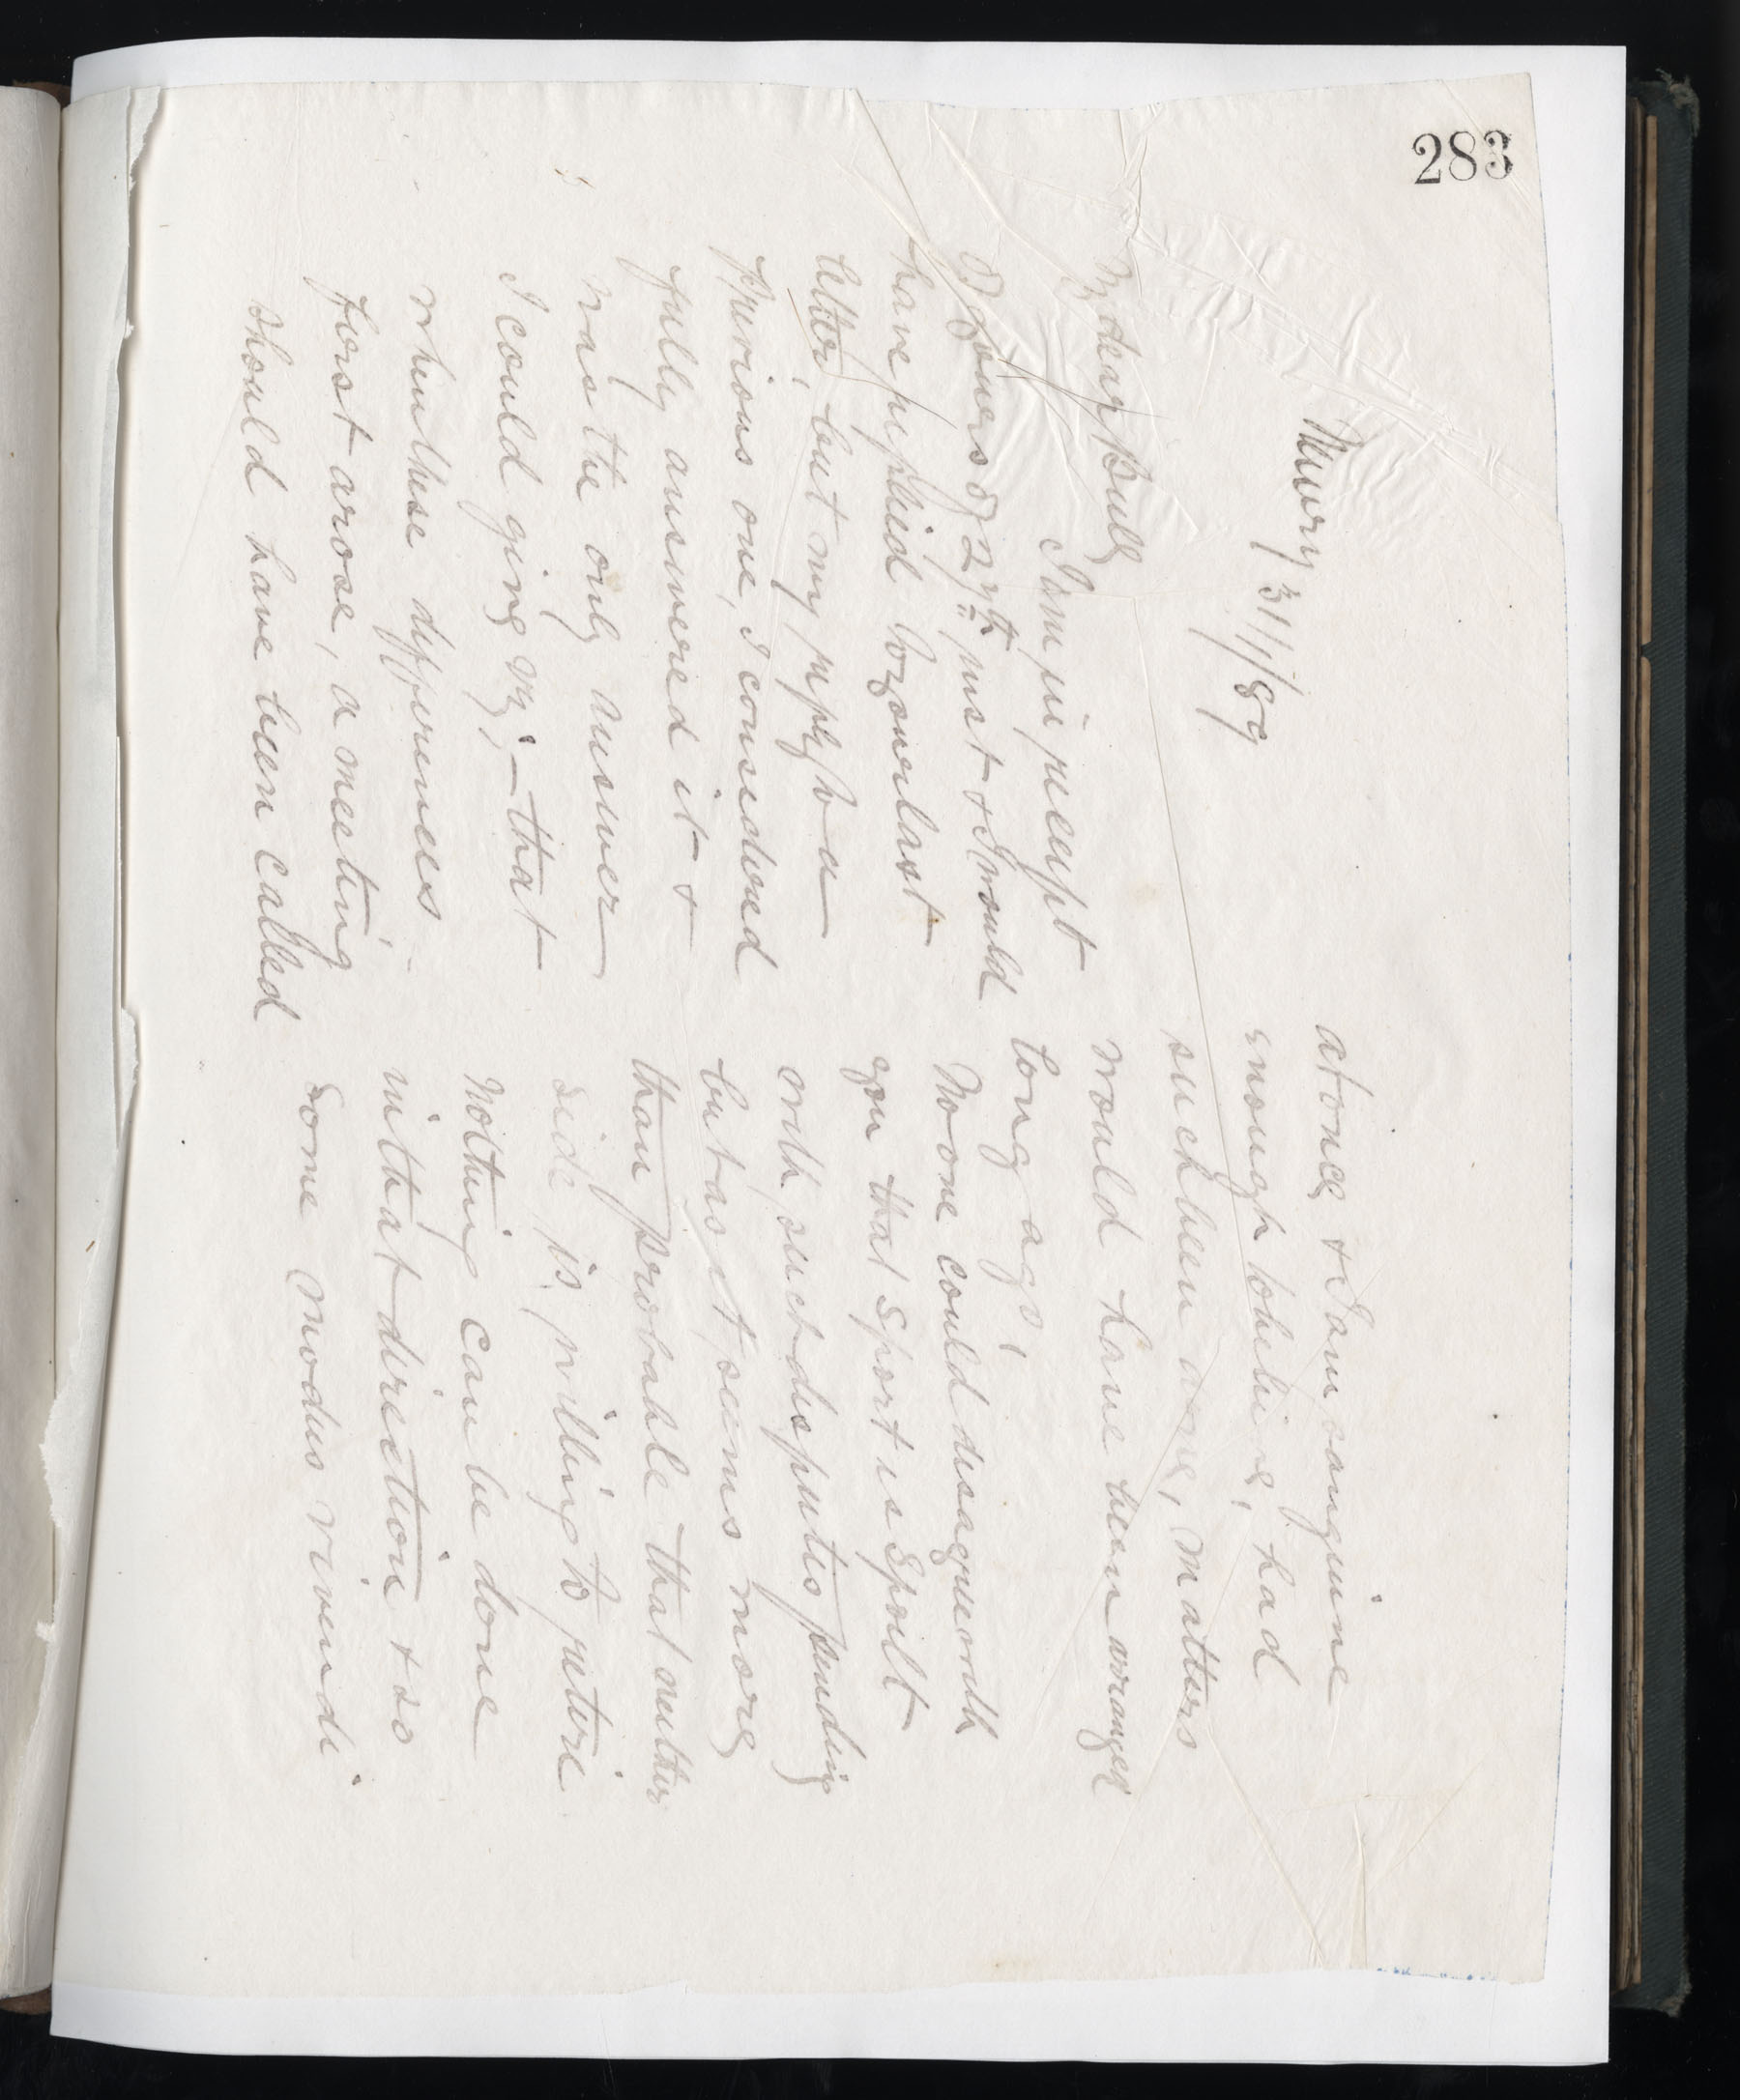 283
Newry 31/1/89
My dear Bull
I am in receipt
of yours of 27th inst & I would
have replied to your last
letter, but my reply to a
previous one, I considered
fully answered it &
was the only answer
I could give viz;— that
when these differences
first arose, a meeting
should have been called
at once & I am sanguine
enough to believe, had
such been done, matters
would have been arranged
long ago!
No one could disagree with
you that Sport is Spoilt
with such disputes pending
but as it seems more
than probable that neither
side is willing to retire
nothing can be done
in that direction & so
some modus vivendi